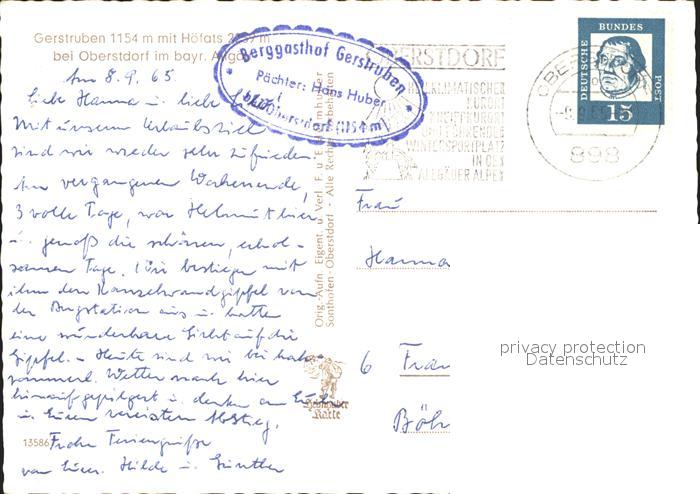 Gerstruben 1154 m mit Höfats
bei Oberstdorf im bayr. Allgäu
Berggasthof Gerstruben
Pächter: Hans Huber
bei Oberstdorf (1154 m)
OBERSTDORF
HEILKLIMATISCHER
KURORT
KNEIPPKURORT
FÜHRENDER
WINTERSPORTPLATZ
IN DEN
ALLGÄUER ALPEN
898
DEUTSCHE BUNDESPOST
15
Am 8.9.65
Liebe Hanna u. liebe
Mit unserem Urlaubsziel
sind wir wieder sehr zufrieden.
Am vergangenen Wochenende,
3 volle Tage, war Helmut hier
u. genoß die schönen, erhol-
samen Tage. Wir bestiegen mit
ihm den Kanzelwandgipfel von
der Bergstation aus u. hatten
eine wunderbare Sicht auf die
Gipfel. - Heute sind wir bei
Wetter nach hier
hinaufgepilgert u. denken an Euch
u. Euren Abstieg.
Frohe Feriengrüße
von Euren Hilde u. Günther
13586
Orig.-Aufn. Eigent. u. Verl. F. u. E. Heimhuber
Sonthofen-Oberstdorf - Alle Rechte vorbehalten
Heimhuber
Karte
Frau
Hanna
6 Fran
Böh
privacy protection
Datenschutz